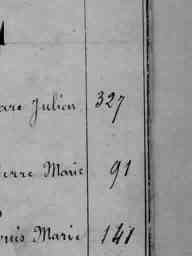 arc Julien 327
ierre Marie 91
ouis Marie 141